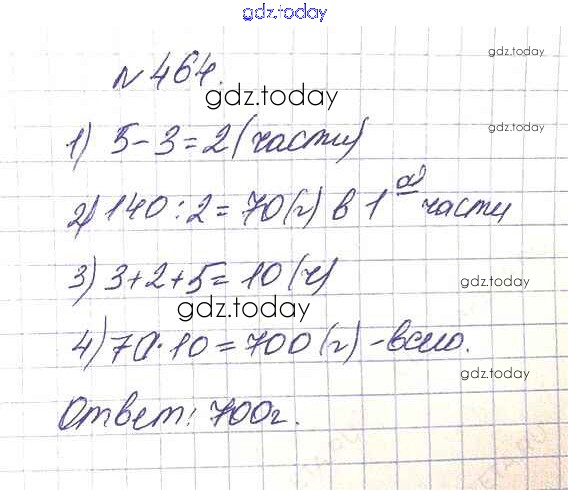 gdz.today
gdz.today
№ 464.
gdz.today
gdz.today
1) 5 - 3 = 2 (части)
2) 140 : 2 = 70 (г) в 1ой части
gdz.today
3) 3 + 2 + 5 = 10 (ч)
gdz.today
gdz.today
4) 70 · 10 = 700 (г) - всего.
gdz.today
Ответ: 700г.